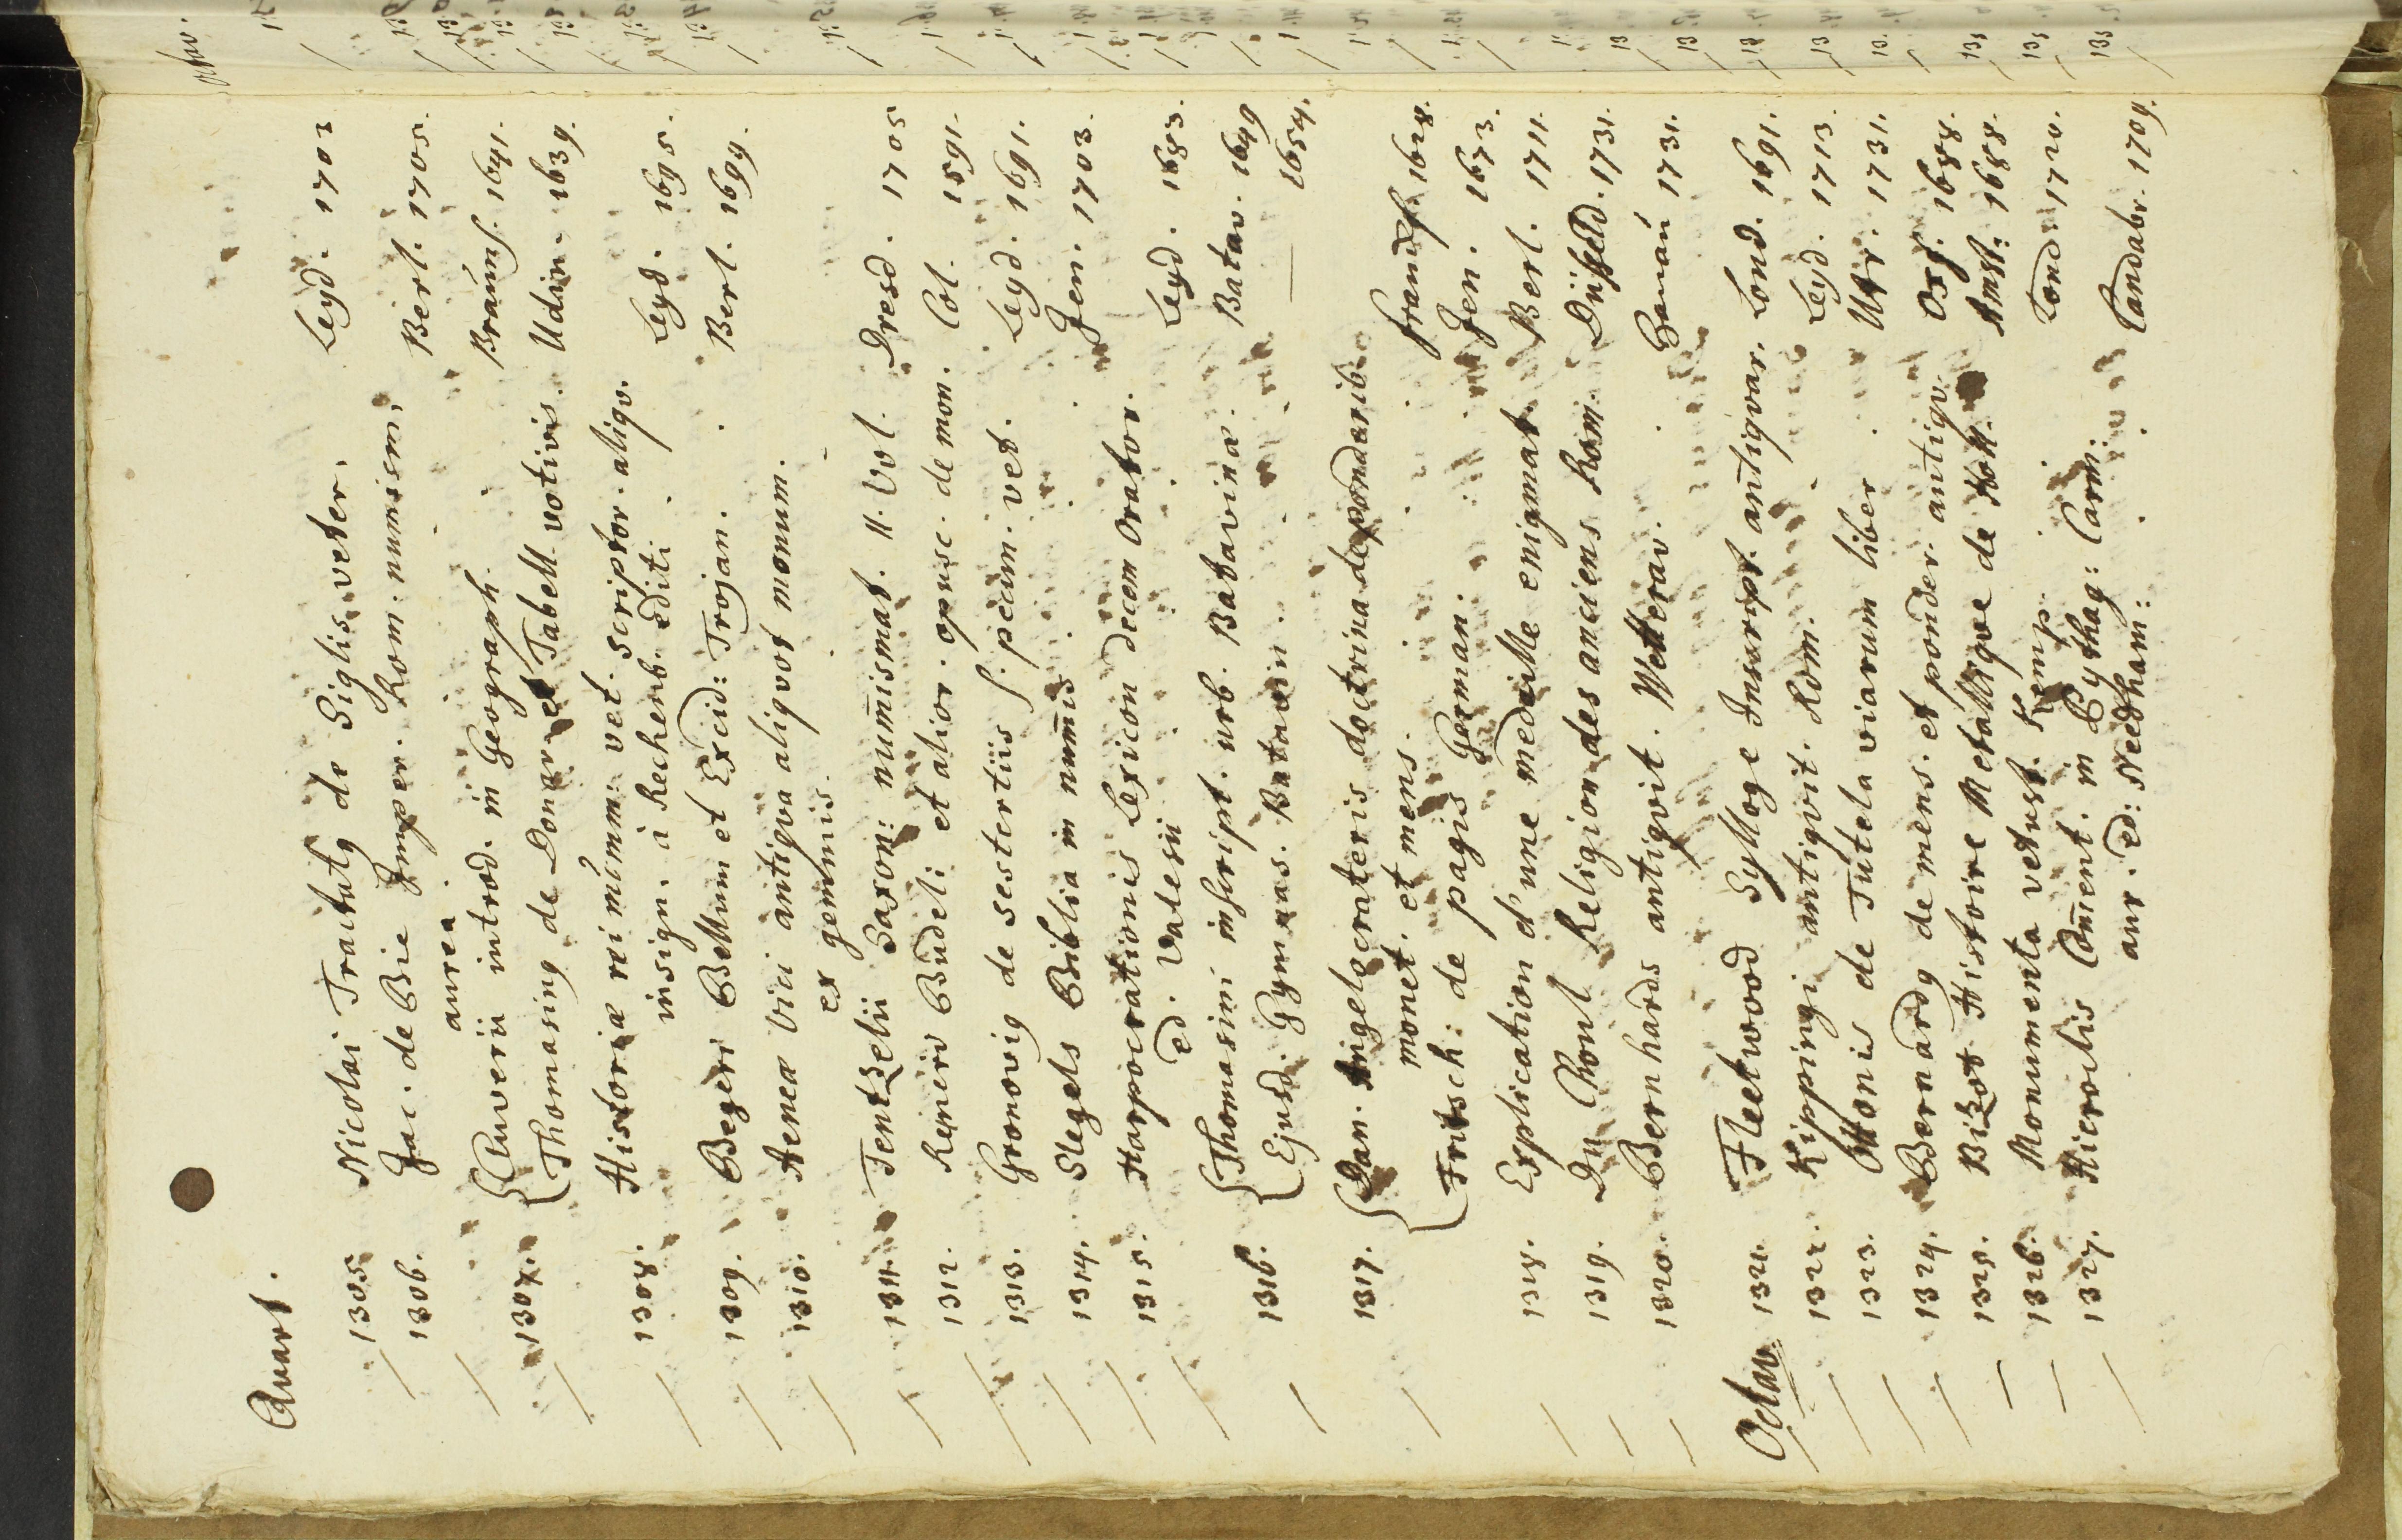 Quart.
1305. Nicolai Tractatq de Siglis veter. Leyd. 1703
1306. Jac. de Bie Imper. Rom: numism: Berl. 1705.
aurea
1307. Cluverii introd. in Geograph. Brauns. 1641.
Thomasinq de Donar. et Tabell. votivis. Udin. 1639.
1308. Historiæ rei numm: vet. scriptor. aliqv.
insign. à Rechenb. editi Leyd. 1695.
1309. Begeri Bellum et Excid: Trojan. Berl. 1699.
1310. Aeneæ Vici antiqva aliqvot monum.
ex gemmis.
1311. Tentzelii Saxon: numismat. II. Vol. Dresd. 1705
1312. Reineri Budeli et alior. opusc. de mon. Col. 1591.
1313. Gronovig de sestertiis s. pecun. vet. Leyd. 1691.
1314. Slegels Biblia in numis Jen. 1703.
1315. Harpocrationis Lexicon decem Orator.
ed. Valesii Leyd. 1683.
1316. Thomasini inscript. urb. Batavinæ. Batav. 1649
Ejusd. Gymnas. Batavin. 1654.
1317. Dan. Angelocrateris doctrina de ponderib.
monet. et mens. Francf. 1628.
Fritsch: de pagis German. Jen. 1673.
1318. Explication d'une medaille enigmat. Berl. 1711.
1319. Du Choul Religion des anciens Rom. Düsseld. 1731.
1320. Bernhards antiqvit. Wetterav. Hanau 1731.
Octav.
1321. Fleetwood Sylloge Inscript. antiqvar. Lond. 1691.
1322. Kippingi antiqvit. Rom. Leyd. 1713.
1323. Ottonis de Tutela viarum liber Utr. 1731.
1324. Bernardq de mens. et ponder. antiqv. Oxf. 1688.
1325. Bizot Histoire Metallique de Holl. Amst. 1688.
1326. Monumenta vetust. Kemp. Lond. 1720.
1327. Hieroclis Coment. in Pythag: Carm:
aur. ed: Needham: Candabr. 1709.
Octav.